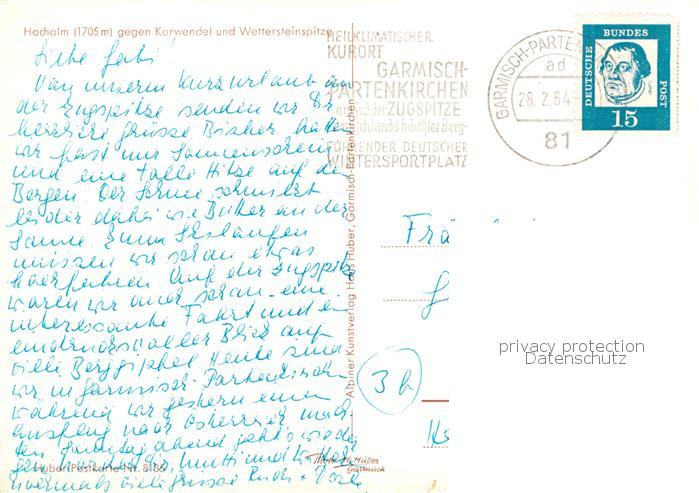 Hochalm (1705 m) gegen Karwendel und Wettersteinspitze
HEILKLIMATISCHER
KURORT
GARMISCH-
PARTENKIRCHEN
ZUGSPITZE
höchster Berg-
FÜHRENDER DEUTSCHER
WINTERSPORTPLATZ
GARMISCH-PARTEN
ad
28.2.64
81
DEUTSCHE BUNDES POST
15
Liebe Gabi!
Von unserem Kurzurlaub an
der Zugspitze senden wir Dir
herzliche Grüsse Bisher hatten
wir fast nur Sonnenschein
und eine tolle Hitze auf den
Bergen. Der Schnee schmilzt
leider dabei wie Butter an der
Sonne Zum Skilaufen
müssen wir schon etwas
höherfahren Auf der Zugspitze
waren wir auch schon – eine
interessante Fahrt und ein
eindrucksvoller Blick auf
viele Berggipfel Heute sind
wir in Garmisch-Partenkirchen
während wir gestern einen
Ausflug nach Österreich mach
ten Sonntag abend geht's wieder
Mutti und
nochmals viele Grüsse
Huber Postkarte Nr. 8136
Photo H. Huber
Garmisch
Alpiner Kunstverlag Hans Huber, Garmisch-Partenkirchen
Frä
3b
privacy protection
Datenschutz